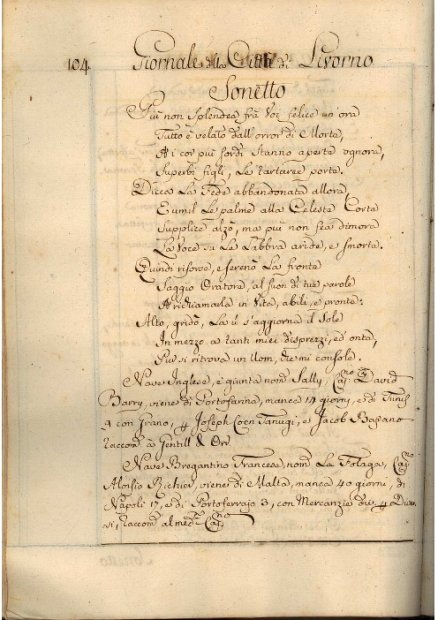 104.
Giornale di Città di Livorno
Sonetto
Più non splendea frà Voi felice un'ora
Tutto è velato dall'orror di Morte,
A i cor più sordi stanno aperte ognora,
Superbi figli, Le tartaree porte.
Dicea La Fede abbandonata allora,
E umil Le palme alla Celeste Corte
Supplice alzò, ma più non fea dimora
La Voce su Le Labbra aride, e smorte.
Quindi risorse, e serenò La fronte
Saggio Oratore, al suon di tue parole
A richiamarla in Vita, abile, e pronte.
Alto, gridò, La ù s'aggiorna il Sole
In mezzo a tanti miei disprezzi, ed onte,
Pur si ritrova un Uom, che mi console.
Nave Inglese, è giunta nom. Sally, Cap.no David
Barry, viene di Portofarina, manca 14 giorni, e di Tunis
4 con Grano, p Joseph Coen Tanugi, e Jacob Bassano
Raccom. a Gentill &
Nave Bregantino Francese, nom. La Folaga, Cap.no
Aloisio Richier, viene di Malta, manca 40 giorni, di
Napoli 17, e di Portoferrajo 3, con Mercanzie p Diver
si, raccom. al med. Cap.no